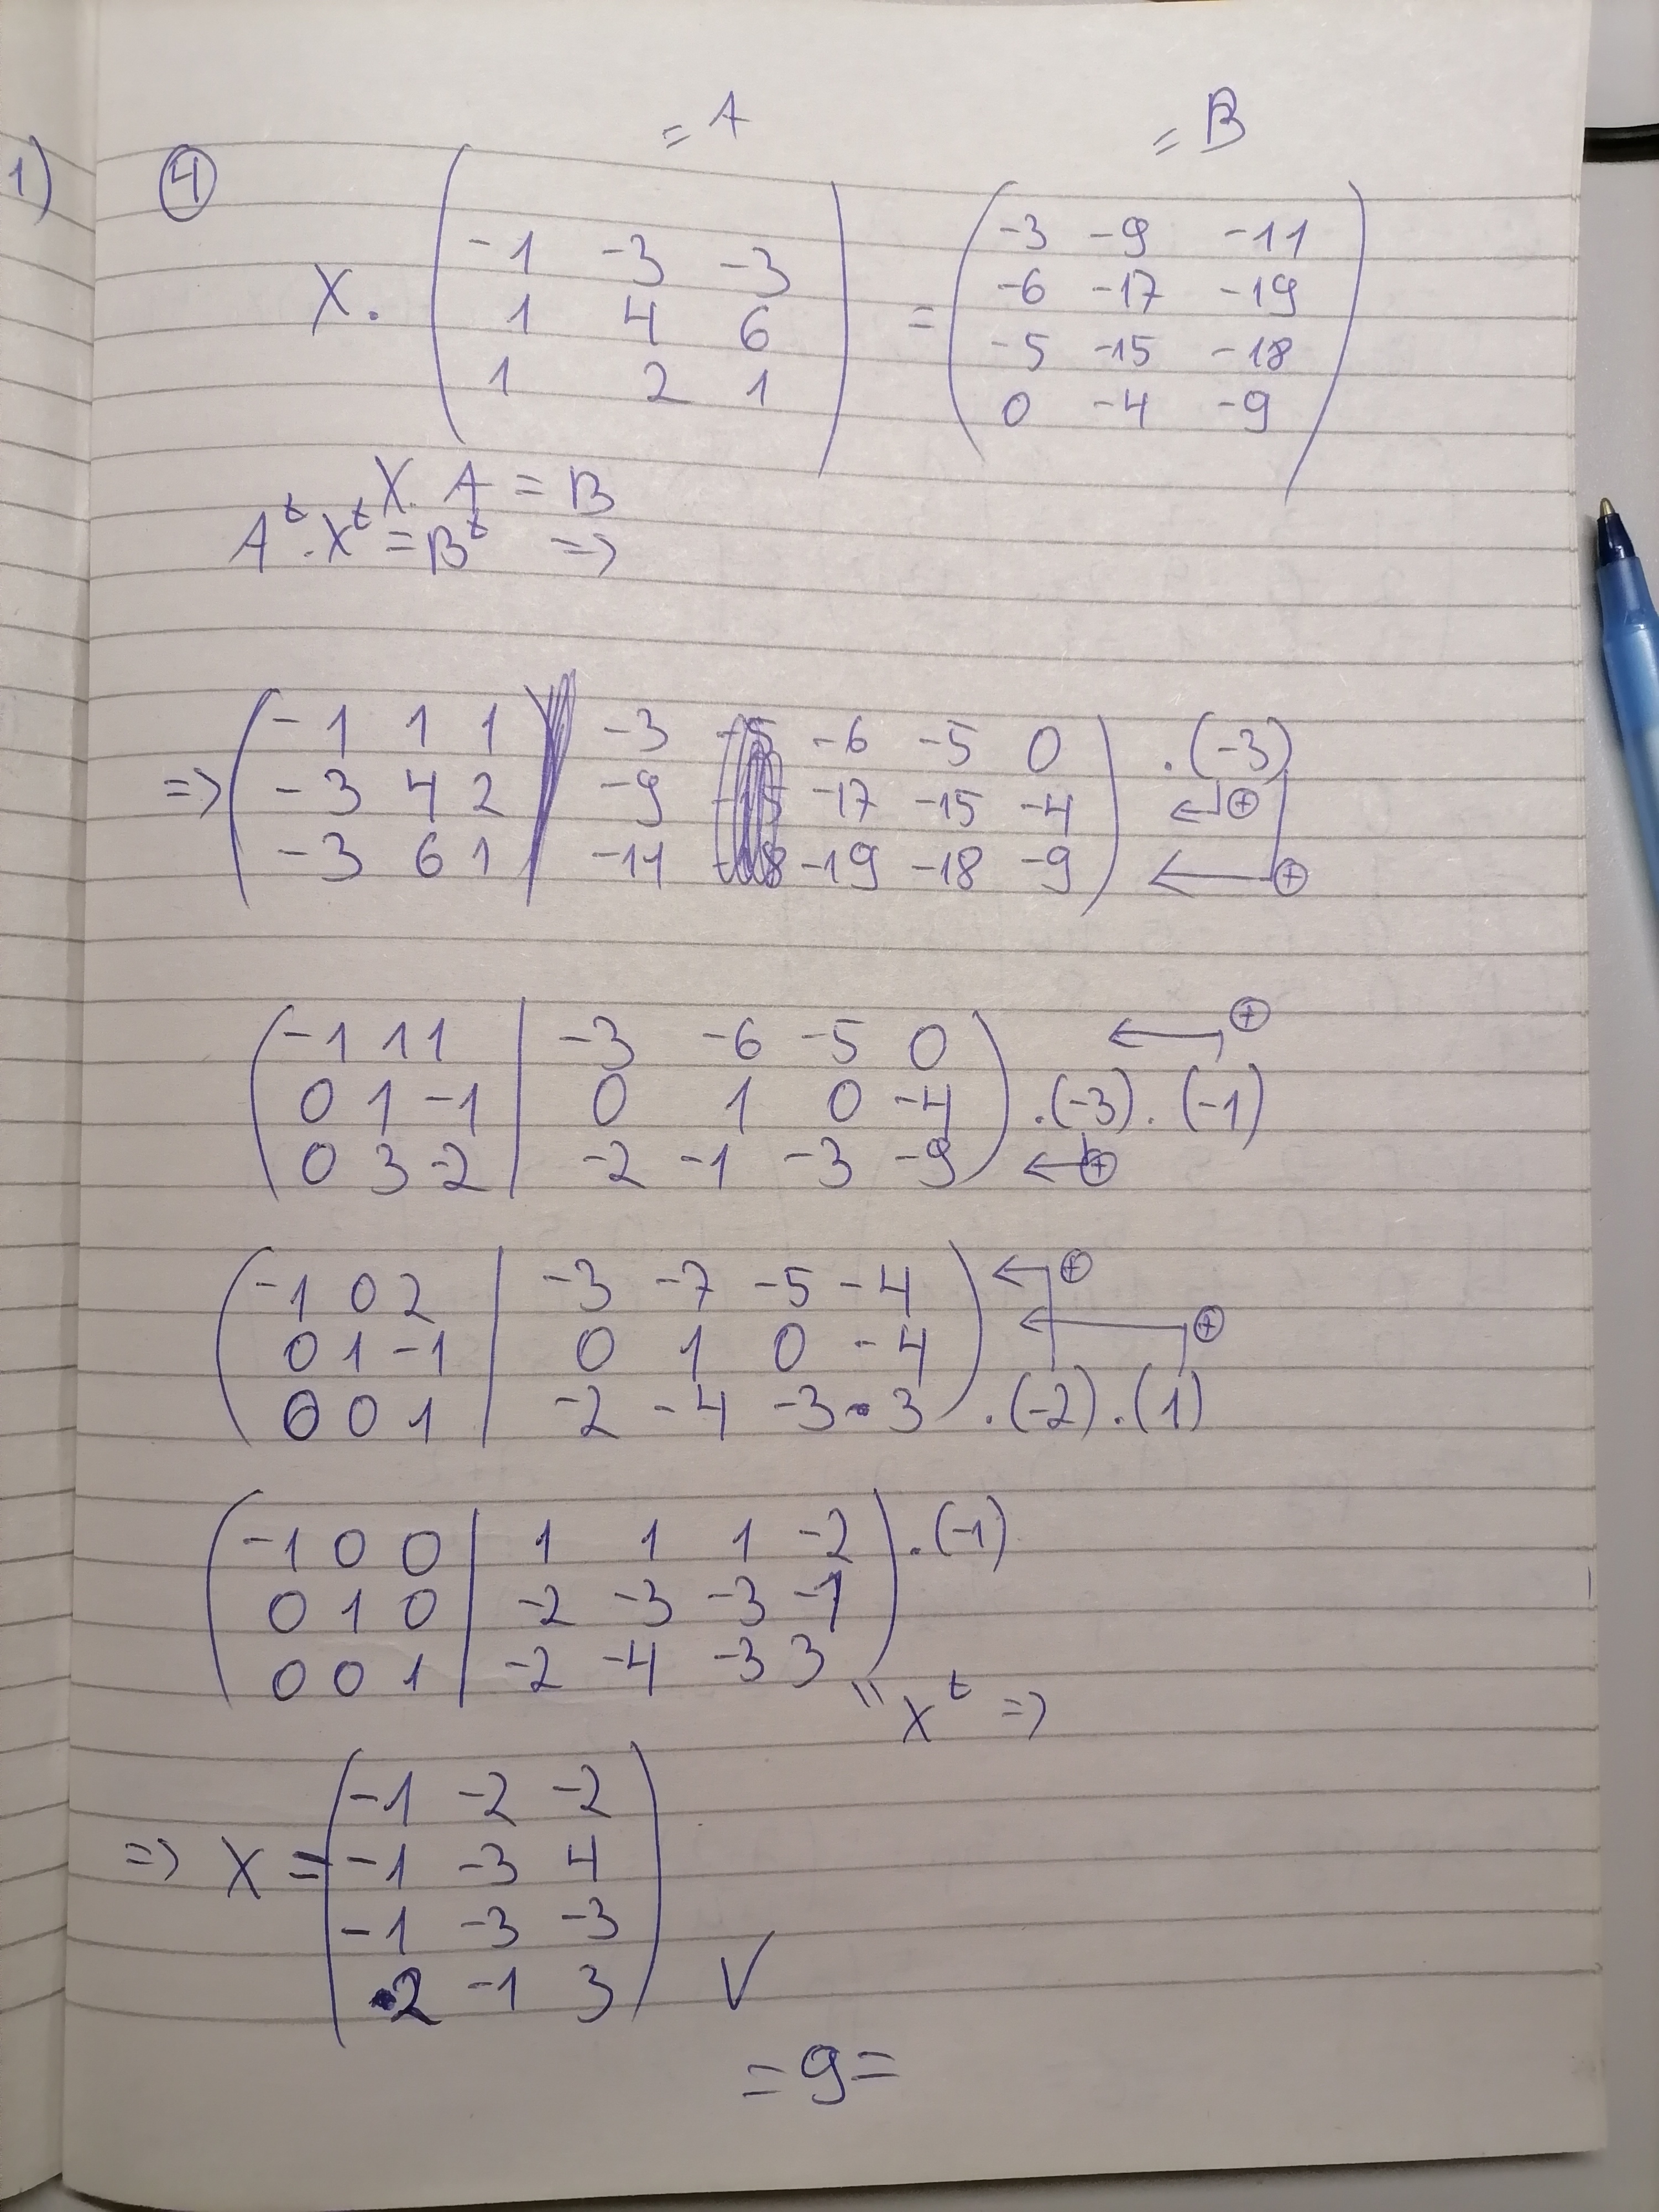 1)
④
= A = B
X. ( -1 -3 -3 ) = ( -3 -9 -11 )
( 1 4 6 ) ( -6 -17 -19 )
( 1 2 1 ) ( -5 -15 -18 )
( 0 -4 -9 )
X. A = B
A^t . X^t = B^t =>
=> ( -1 1 1 | -3 -6 -5 0 ) .(-3)
( -3 4 2 | -9 -17 -15 -4 ) ← ⊕
( -3 6 1 | -11 -19 -18 -9 ) ← ⊕
( -1 1 1 | -3 -6 -5 0 ) ← ⊕
( 0 1 -1 | 0 1 0 -4 ) .(-3) . (-1)
( 0 3 -2 | -2 -1 -3 -9 ) ← ⊕
( -1 0 2 | -3 -7 -5 -4 ) ← ⊕
( 0 1 -1 | 0 1 0 -4 ) ← ⊕
( 0 0 1 | -2 -4 -3 3 ) .(-2) . (1)
( -1 0 0 | 1 1 1 -2 ) .(-1)
( 0 1 0 | -2 -3 -3 -1 )
( 0 0 1 | -2 -4 -3 3 )
" X^t =>
=> X = ( -1 -2 -2 )
( -1 -3 4 )
( -1 -3 -3 )
( 2 -1 3 ) √
= 9 =